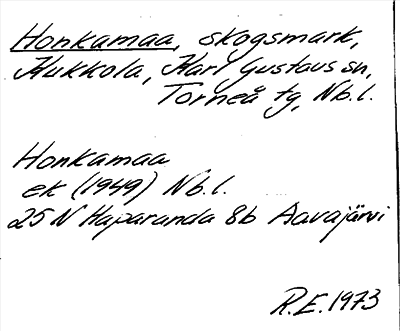 Honkamaa, skogsmark,
Kukkola, Karl Gustavs sn,
Torneå tg, Nb.l.
Honkamaa
ek (1949) Nb.l.
25 N Haparanda 8b Aavajärvi
R.E. 1973